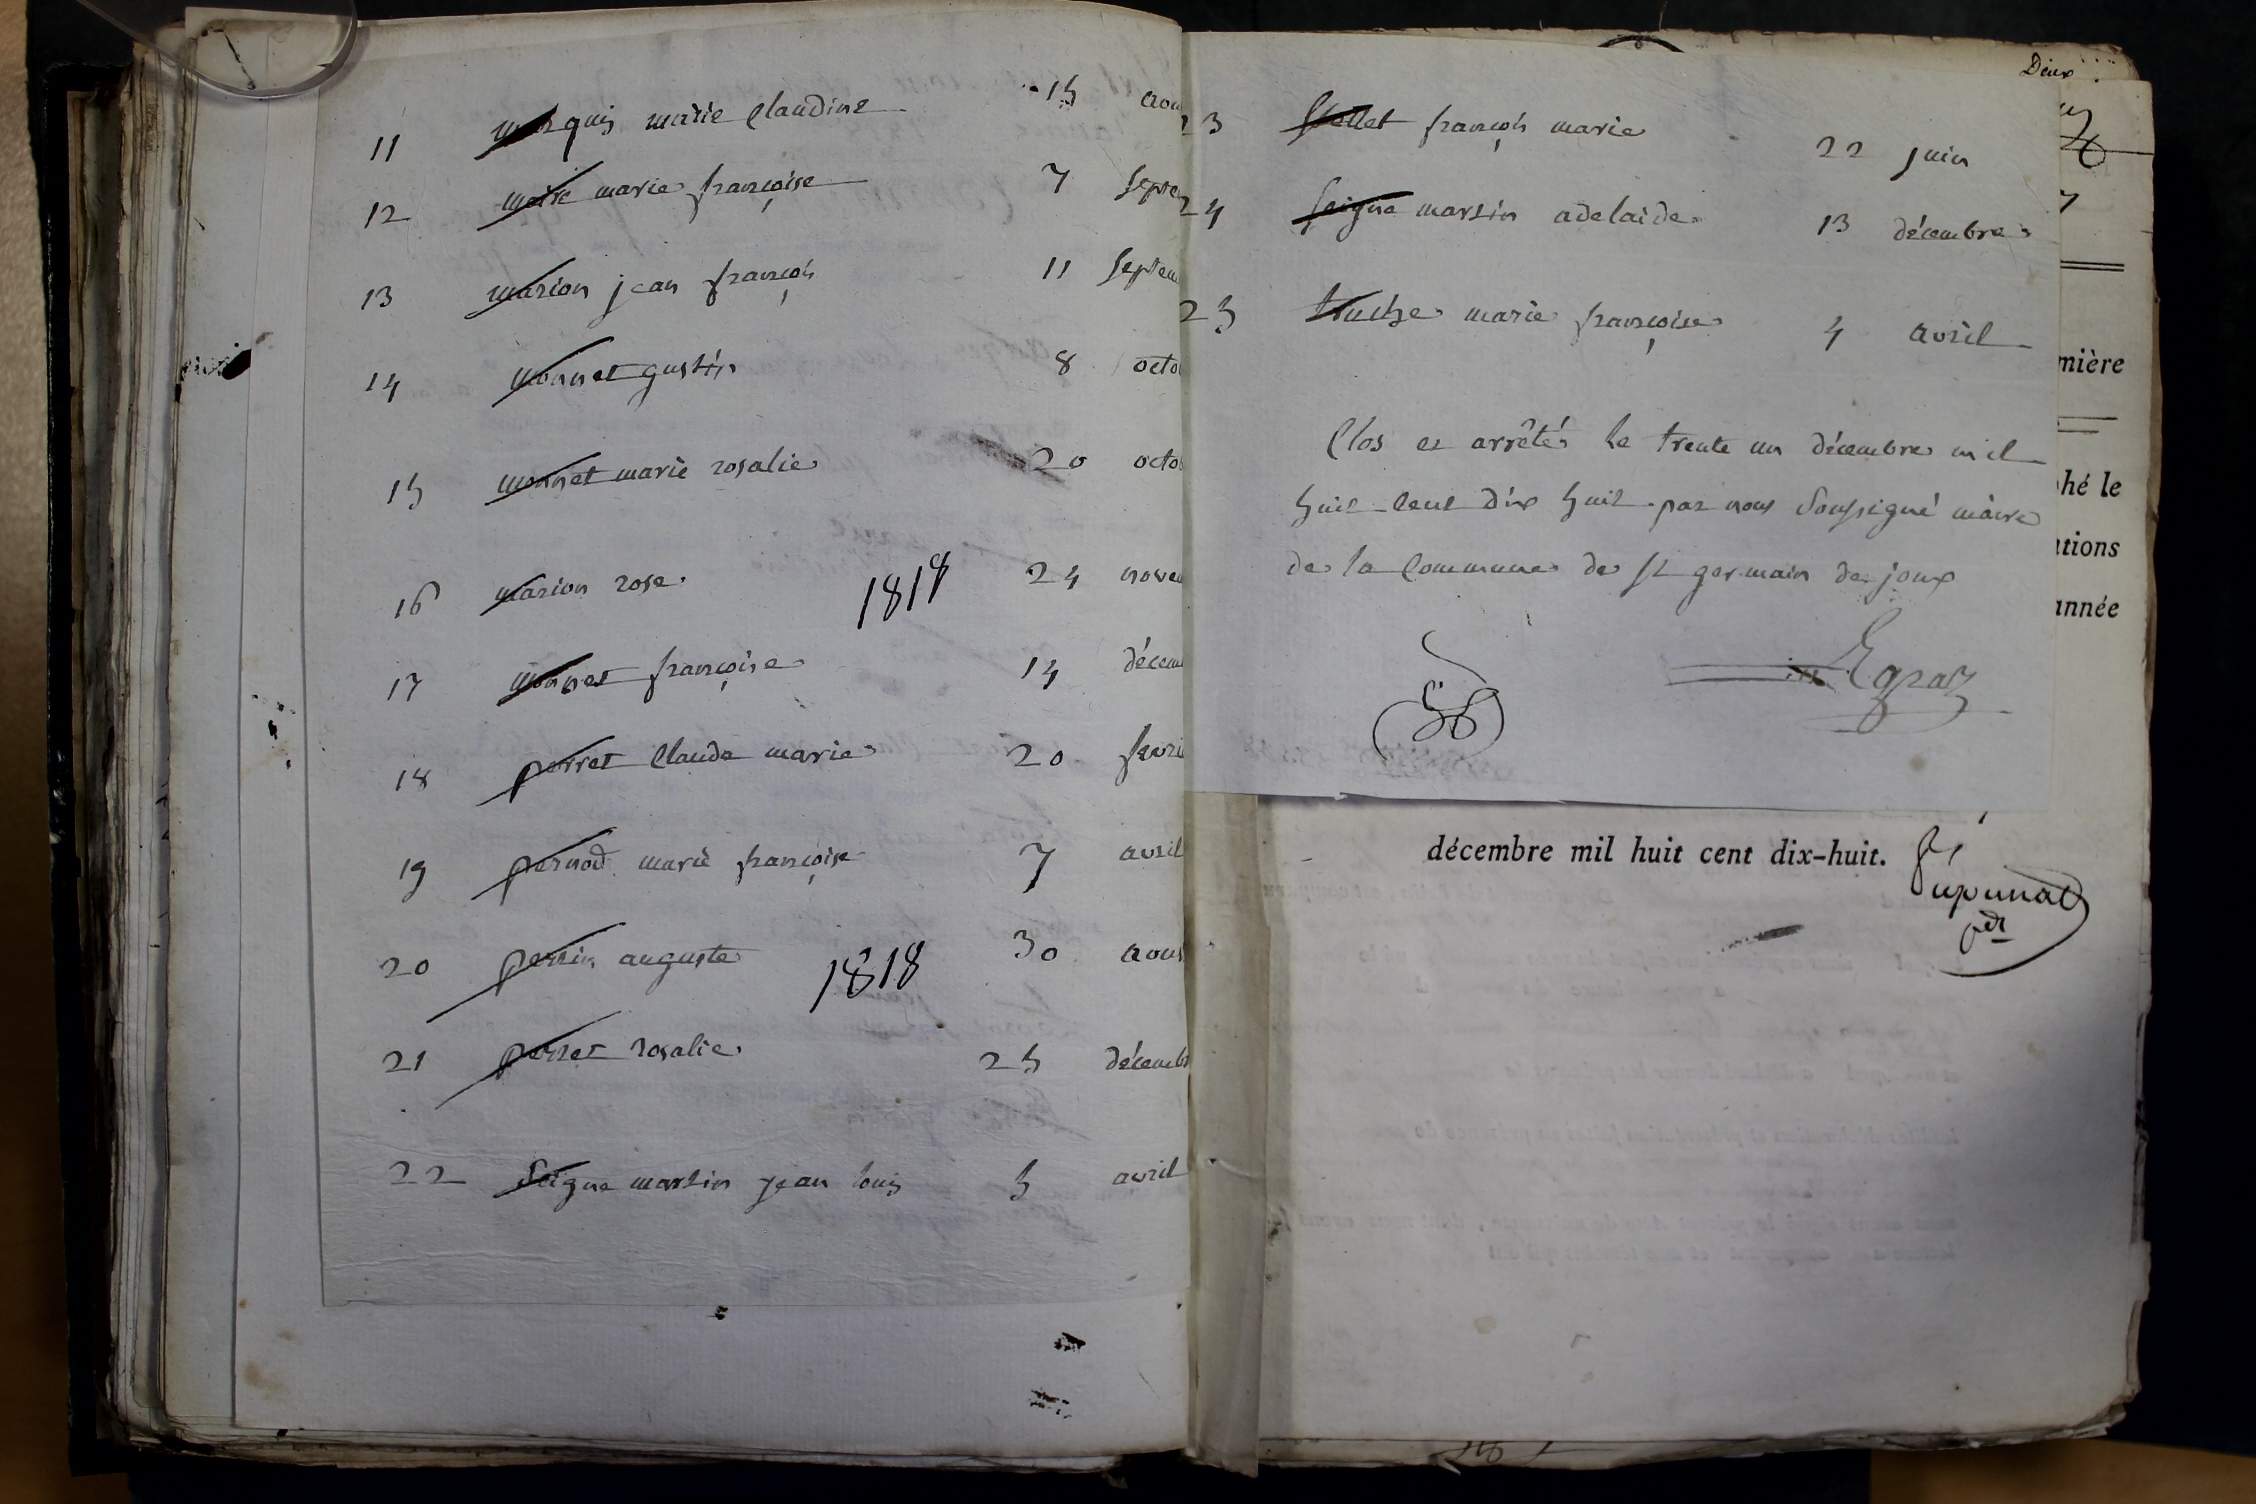 11 marquis marie Claudine 15 aou
12 marie françoise 7 Septe
13 marion jean françois 11 Septem
14 monnet gustin 8 octo
15 monnet marie rosalie 20 octo
16 marion rose 1818 24 novem
17 monnet françoise 14 décem
18 perret Claude marie 20 fevri
19 pernod marie françoise 7 avril
20 perrin auguste 1818 30 aous
21 perret rosalie 25 décemb
22 Seigne martin jean louis 5 avril
Deux
23 françois marie 22 juin
24 Seigne martin adelaide 13 décembre
25 truche marie françoise 4 avril
Clos et arrêtés le trente un décembre mil
huit cent dix huit par nous soussigné maire
de la Commune de St germain de joux
Egraz
mière
hé le
tions
année
décembre mil huit cent dix-huit.